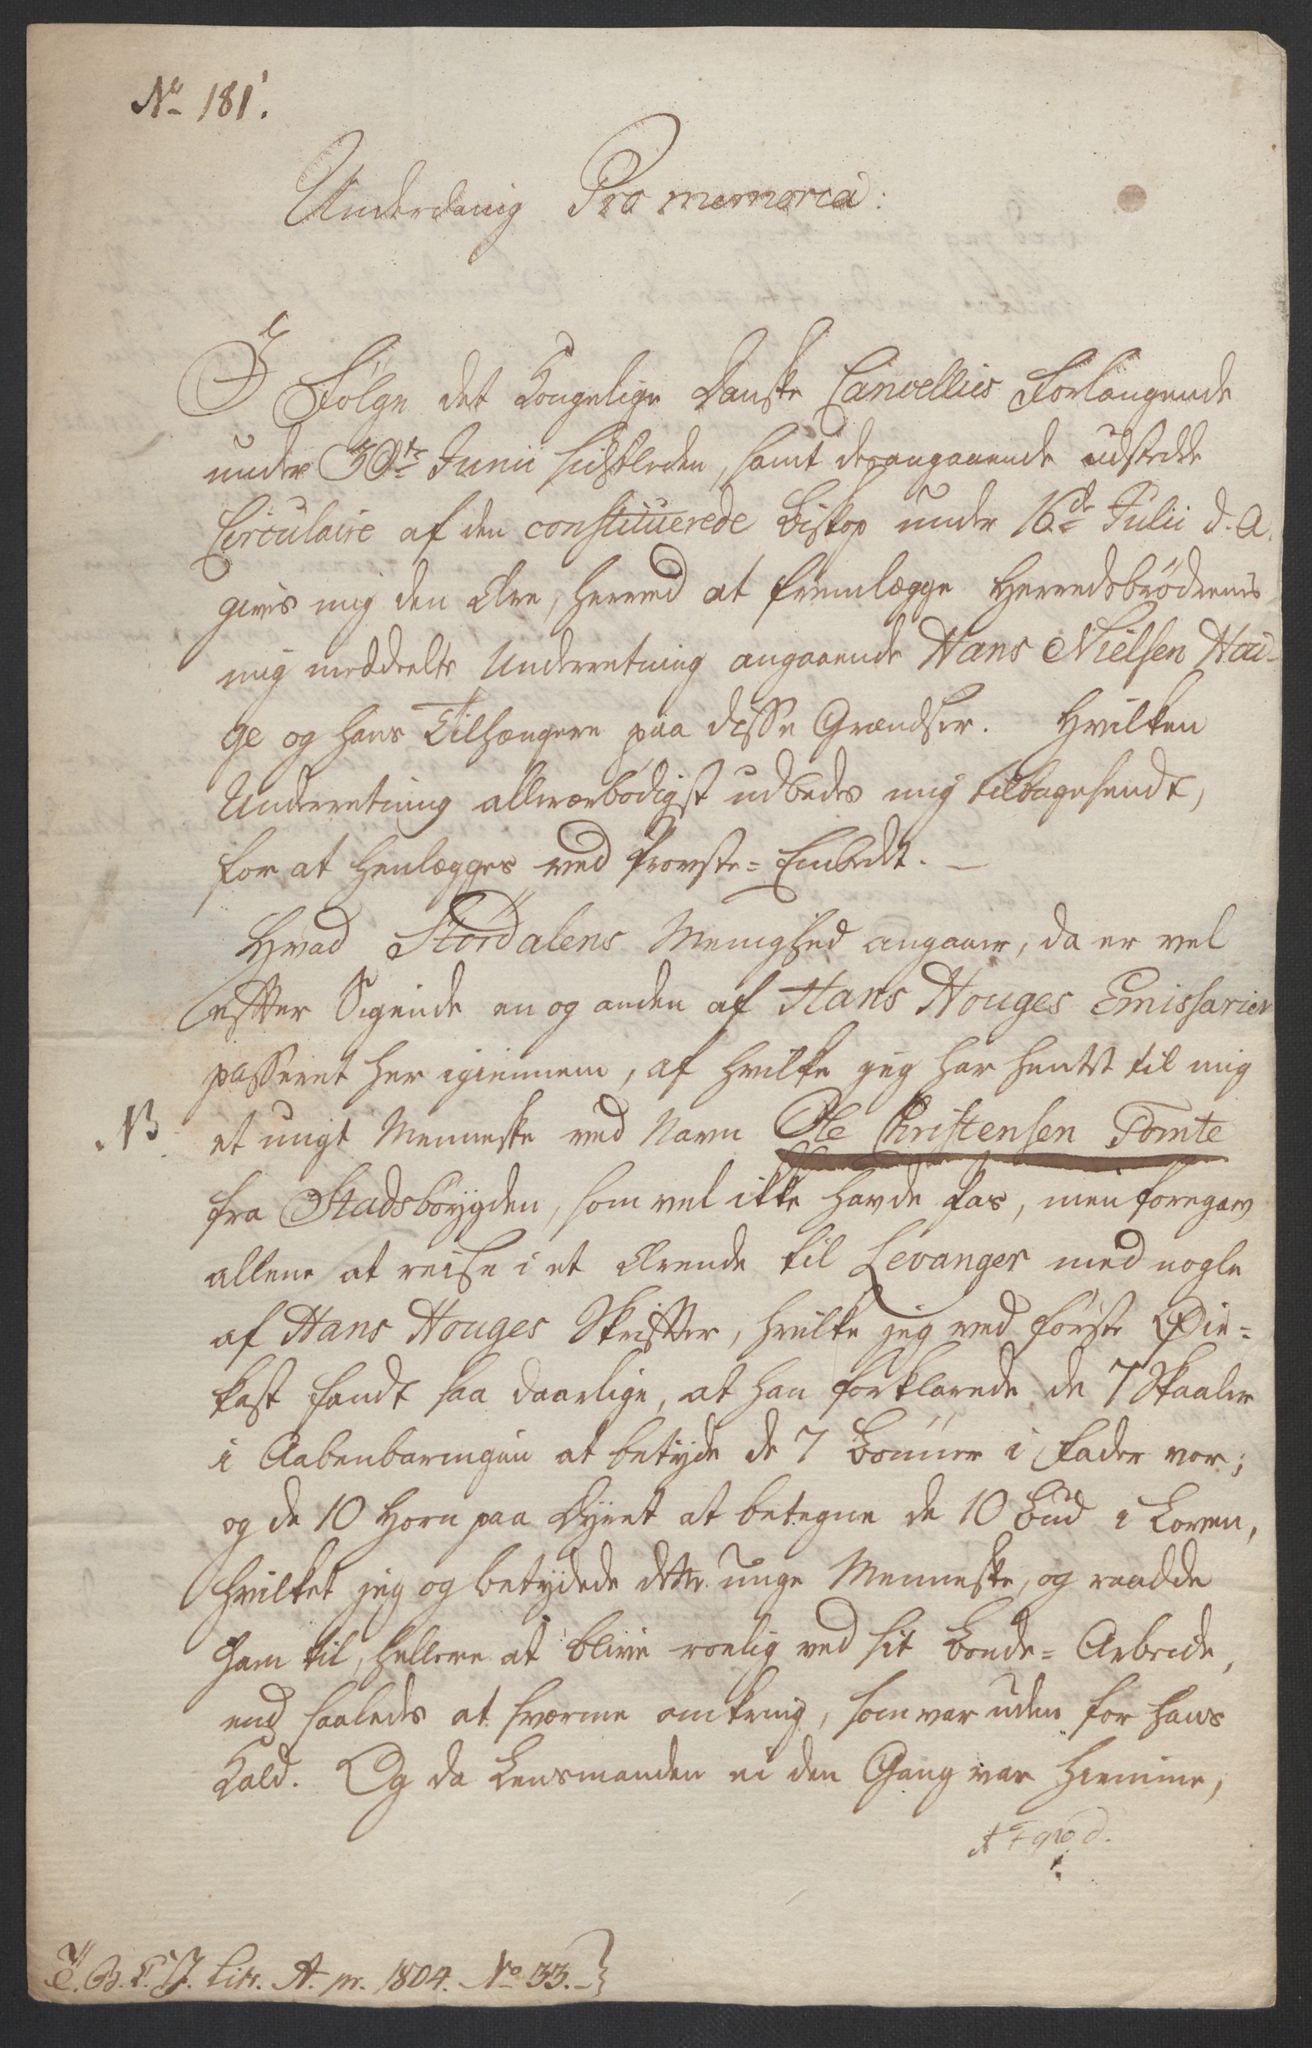 No 181.
Underdanig Pro memoria:
I Følge det Kongelige Danske Cancellies Forlangende
under 30te Junii sidstleden, samt desangaaende udstedde
Circulaire af den constituerede Biskop under 16de Julii d. A.
gives mig den Ære, herved at fremlægge Herredsbrødrenes
mig meddeelte Underretning angaaende Hans Nielsen Hou-
ge og hans Tilhængere paa disse Grændser. Hvilken
Underretning allerærbødigst udbedes mig tilbagesendt,
for at henlægges ved Provste-Embedet. —
Hvad Størdalens Menighed angaaer, da er vel
efter Sigende en og anden af Hans Houges Emissarier
passeret her igiennem, af hvilke jeg har hentet til mig
NB. et ungt Menneske ved Navn Ole Christensen Tomte
fra Stadsbøygden, som vel ikke havde Pas, men foregav
allene at reise i et Ærende til Levanger med nogle
af Hans Houges Skrifter, hvilke jeg ved første Øie-
kast fandt saa daarlige, at han forklarede de 7 Skaaler
i Aabenbaringen at betyde de 7 Bønner i Fader vor;
og de 10 Horn paa Dyret at betegne de 10 Bud i Loven,
hvilket jeg og betydede dette unge Menneske, og raadde
ham til, hellere at blive roelig ved sit Bonde-Arbeide,
end saaledes at sværme omkring, som var uden for hans
Kald. Og da Lensmanden ei den Gang var hiemme,
T. B. C. J. Litr. A. pr. 1804. No 33.